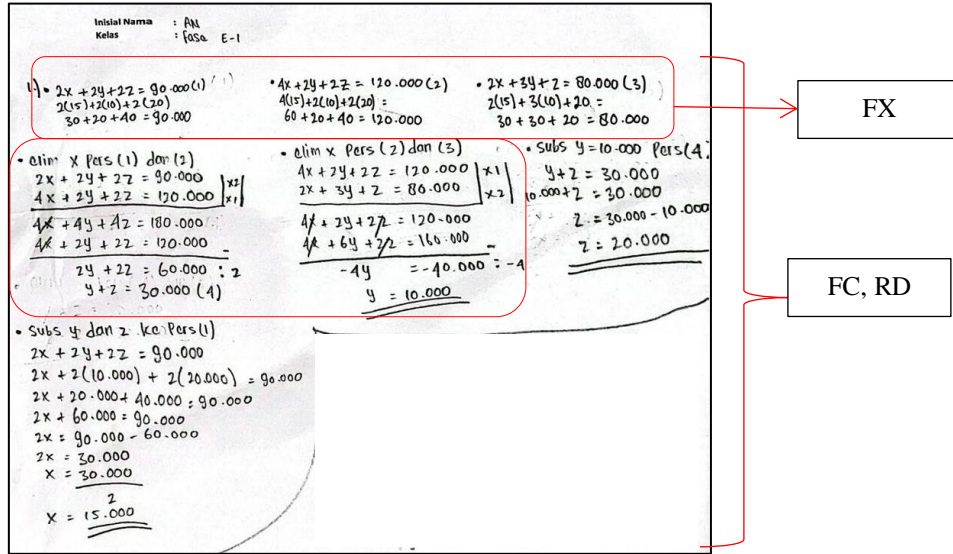 Inisial Nama : AN
Kelas : fasa E-1
1.) • 2x + 2y + 2z = 90.000 (1)
2(15) + 2(10) + 2(20)
30 + 20 + 40 = 90.000
• 4x + 2y + 2z = 120.000 (2)
4(15) + 2(10) + 2(20) =
60 + 20 + 40 = 120.000
• 2x + 3y + z = 80.000 (3)
2(15) + 3(10) + 20 =
30 + 30 + 20 = 80.000
FX
• elim x Pers (1) dan (2)
2x + 2y + 2z = 90.000 | x2 |
4x + 2y + 2z = 120.000 | x1 |
4x + 4y + 4z = 180.000
4x + 2y + 2z = 120.000 -
2y + 2z = 60.000 : 2
y + z = 30.000 (4)
• elim x Pers (2) dan (3)
4x + 2y + 2z = 120.000 | x1 |
2x + 3y + z = 80.000 | x2 |
4x + 2y + 2z = 120.000
4x + 6y + 2z = 160.000 -
-4y = -40.000 : -4
y = 10.000
• subs y = 10.000 Pers (4)
y + z = 30.000
10.000 + z = 30.000
z = 30.000 - 10.000
z = 20.000
FC, RD
• subs y dan z ke Pers (1)
2x + 2y + 2z = 90.000
2x + 2(10.000) + 2(20.000) = 90.000
2x + 20.000 + 40.000 = 90.000
2x + 60.000 = 90.000
2x = 90.000 - 60.000
2x = 30.000
x = 30.000
2
x = 15.000